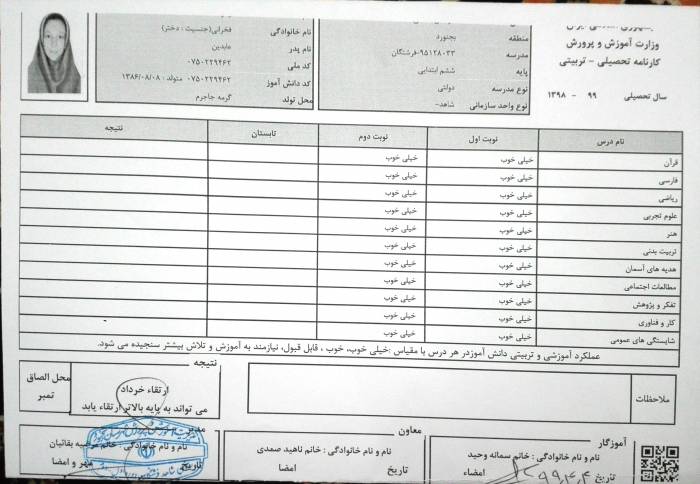 وزارت آموزش و پرورش
کارنامه تحصیلی - تربیتی
سال تحصیلی ۹۹ - ۱۳۹۸
منطقه بجنورد
مدرسه ۹۵۱۲۸۰۳۳-فرشتگان
پایه ششم ابتدایی
نوع مدرسه دولتی
نوع واحد سازمانی شاهد-
نام خانوادگی فخرایی(جنسیت : دختر)
نام پدر عابدین
کد ملی ۰۷۵۰۲۲۹۴۶۲
کد دانش آموز ۰۷۵۰۲۲۹۴۶۲ متولد : ۱۳۸۶/۰۸/۰۸
محل تولد گرمه جاجرم
نام درس نوبت اول نوبت دوم تابستان نتیجه
قرآن خیلی خوب خیلی خوب
فارسی خیلی خوب خیلی خوب
ریاضی خیلی خوب خیلی خوب
علوم تجربی خیلی خوب خیلی خوب
هنر خیلی خوب خیلی خوب
تربیت بدنی خیلی خوب خیلی خوب
هدیه های آسمان خیلی خوب خیلی خوب
مطالعات اجتماعی خیلی خوب خیلی خوب
تفکر و پژوهش خیلی خوب خیلی خوب
کار و فناوری خیلی خوب خیلی خوب
شایستگی های عمومی خیلی خوب خیلی خوب
عملکرد آموزشی و تربیتی دانش آموزدر هر درس با مقیاس :خیلی خوب، خوب ، قابل قبول، نیازمند به آموزش و تلاش بیشتر سنجیده می شود.
ملاحظات
نتیجه
ارتقاء خرداد
می تواند به پایه بالاتر ارتقاء یابد
محل الصاق
تمبر
آموزگار
نام و نام خانوادگی : خانم سمانه وحید
تاریخ ۹۹,۴,۴ امضاء
معاون
نام و نام خانوادگی : خانم ناهید صمدی
تاریخ امضا
مدیر
نام و نام خانوادگی : خانم مرضیه بقائیان
تاریخ مهر و امضا